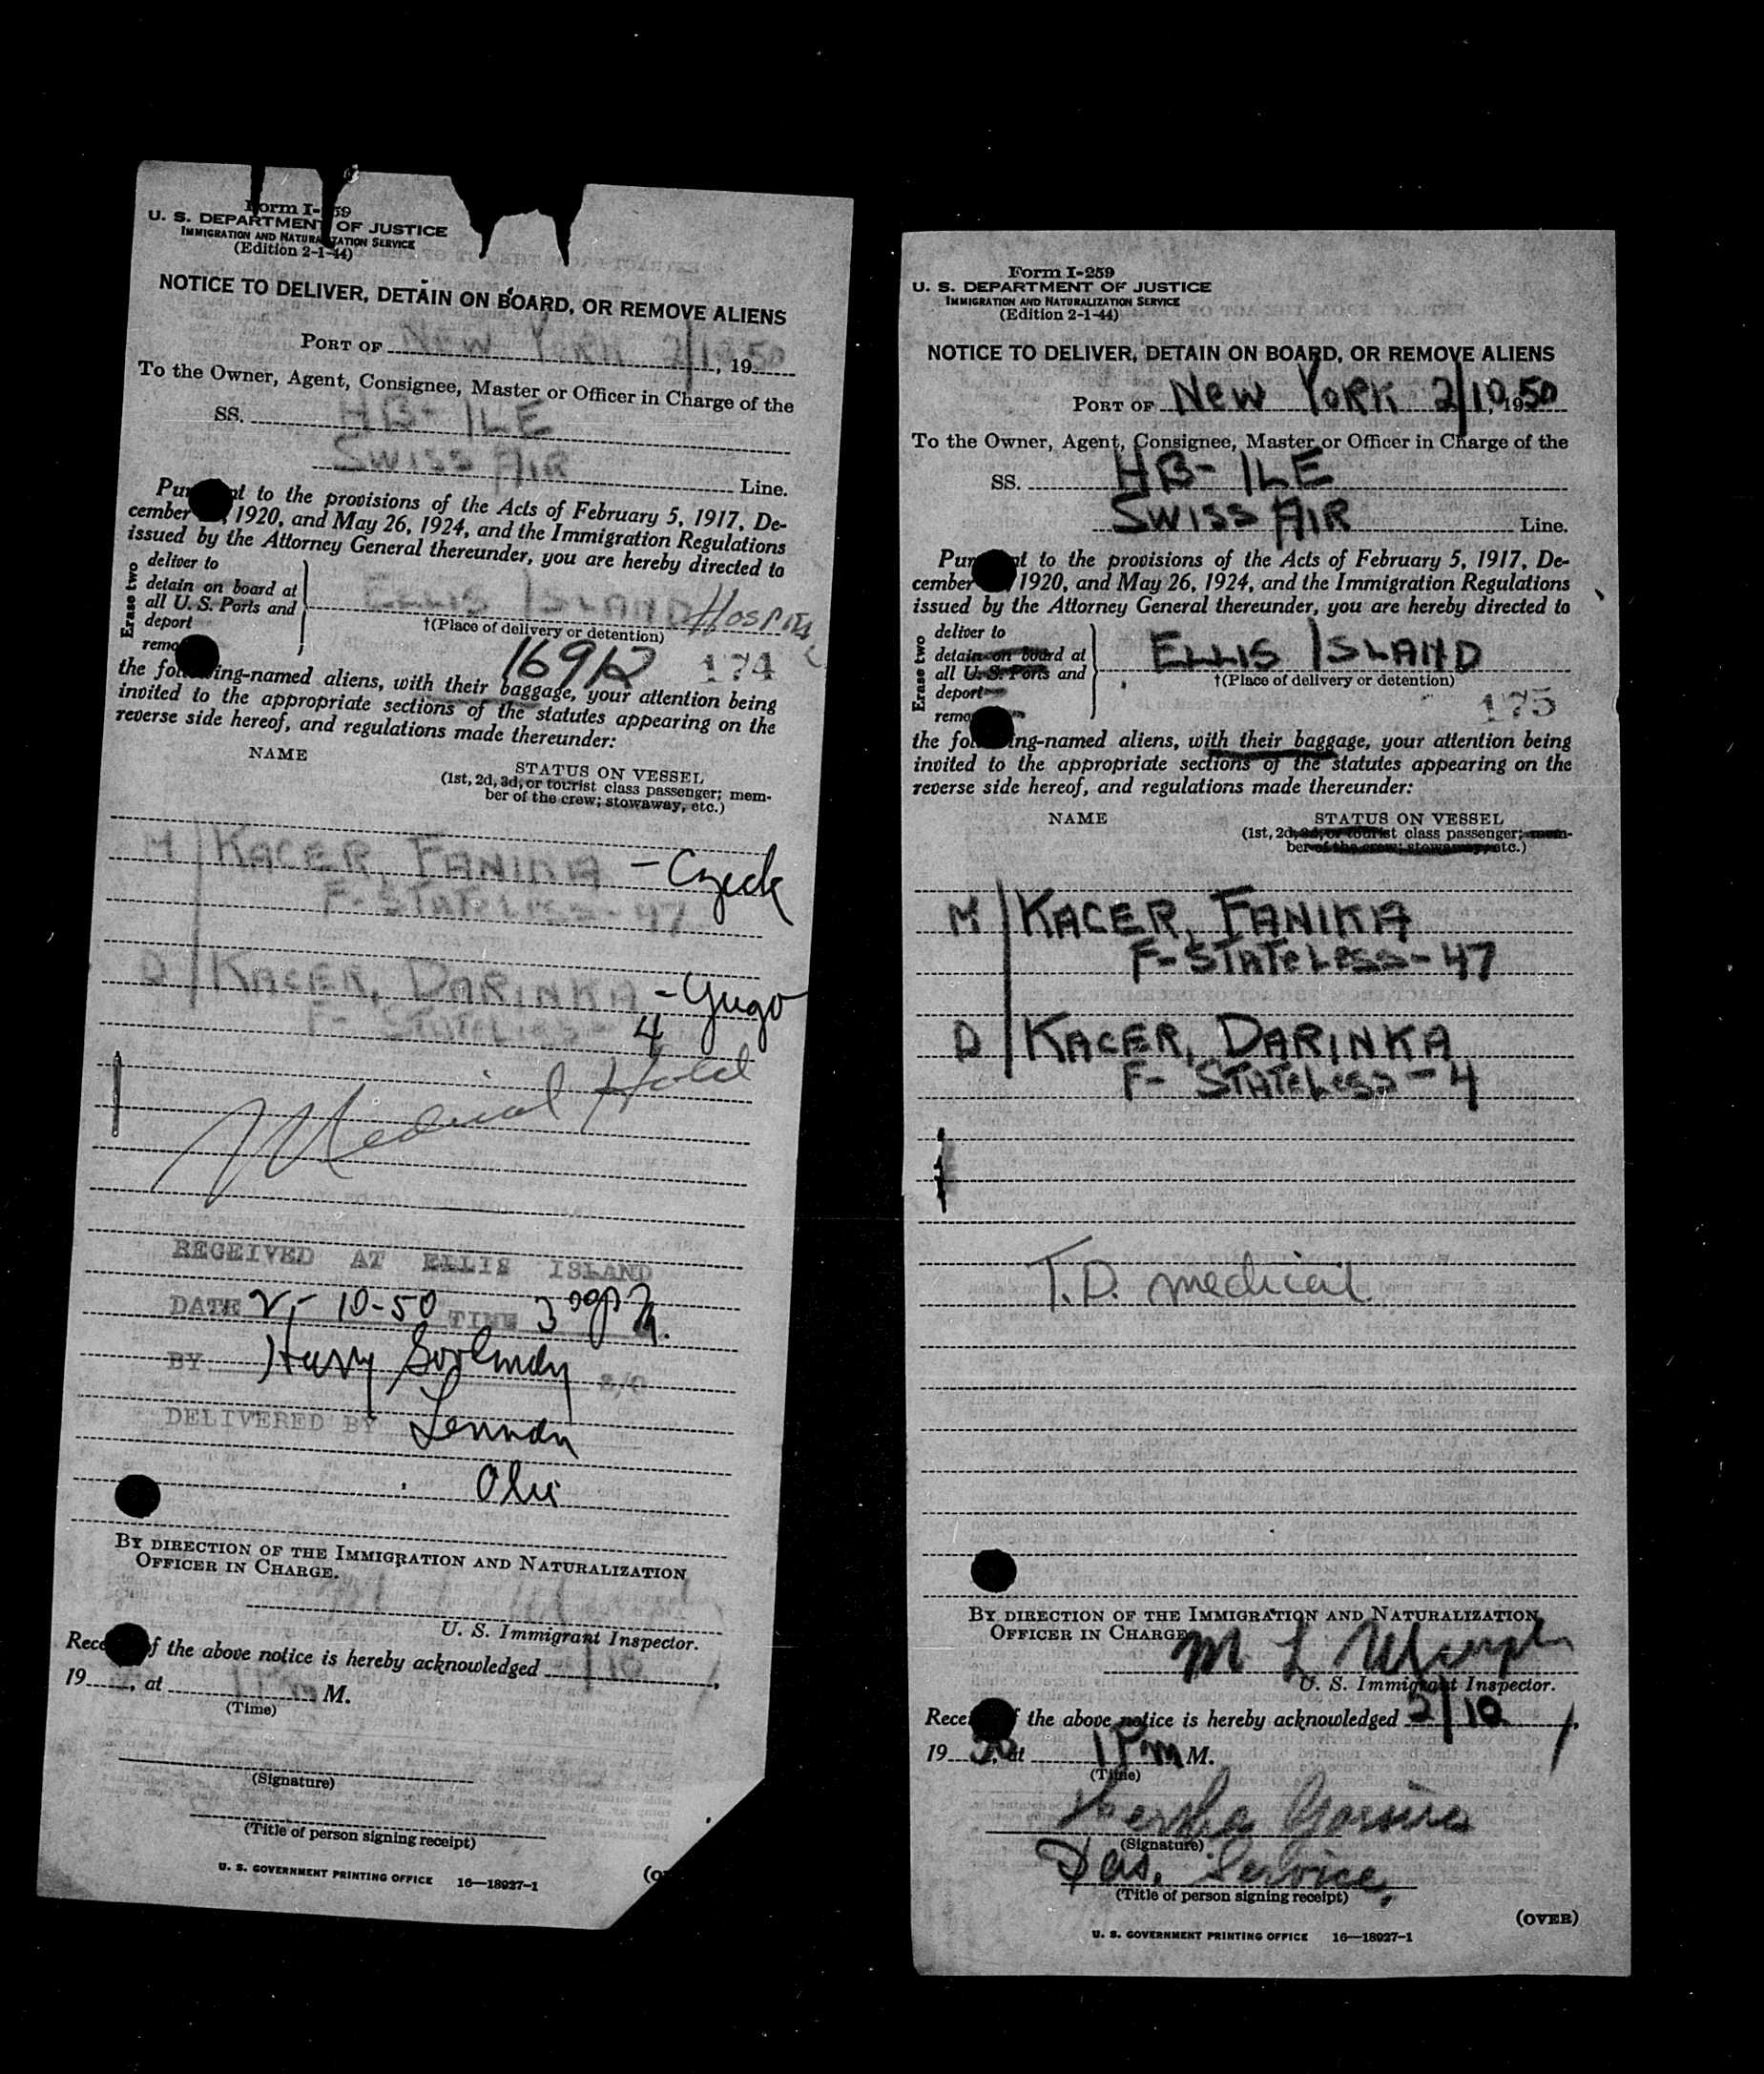 Form I-259
U. S. DEPARTMENT OF JUSTICE
IMMIGRATION AND NATURALIZATION SERVICE
(Edition 2-1-44)
NOTICE TO DELIVER, DETAIN ON BOARD, OR REMOVE ALIENS
PORT OF NEW YORK 2/10, 1950
To the Owner, Agent, Consignee, Master or Officer in Charge of the
SS. HB-ILE
SWISS AIR Line.
Pur nt to the provisions of the Acts of February 5, 1917, De-
cember , 1920, and May 26, 1924, and the Immigration Regulations
issued by the Attorney General thereunder, you are hereby directed to
Erase two
deliver to
detain on board at
all U. S. Ports and
deport
remo
ELLIS ISLAND Hospital
†(Place of delivery or detention)
16912 174
the fol ing-named aliens, with their baggage, your attention being
invited to the appropriate sections of the statutes appearing on the
reverse side hereof, and regulations made thereunder:
NAME
STATUS ON VESSEL
(1st, 2d, 3d, or tourist class passenger; mem-
ber of the crew; stowaway, etc.)
M KACER, FANIKA - Czech
F- STATELESS- 47
D KACER, DARINKA - Yugo
F- STATELESS- 4
Medical Hold
RECEIVED AT ELLIS ISLAND
DATE 2-10-50 TIME 3 00 P M.
BY Harry S/O
DELIVERED BY Lennon
BY DIRECTION OF THE IMMIGRATION AND NATURALIZATION
OFFICER IN CHARGE.
U. S. Immigrant Inspector.
Rece f the above notice is hereby acknowledged 2/10,
19 , at 1 Pm M.
(Time)
(Signature)
(Title of person signing receipt)
U. S. GOVERNMENT PRINTING OFFICE 16—18927-1
Form I-259
U. S. DEPARTMENT OF JUSTICE
IMMIGRATION AND NATURALIZATION SERVICE
(Edition 2-1-44)
NOTICE TO DELIVER, DETAIN ON BOARD, OR REMOVE ALIENS
PORT OF NEW YORK 2/10, 1950
To the Owner, Agent, Consignee, Master or Officer in Charge of the
SS. HB-ILE
SWISS AIR Line.
Pur nt to the provisions of the Acts of February 5, 1917, De-
cember 1920, and May 26, 1924, and the Immigration Regulations
issued by the Attorney General thereunder, you are hereby directed to
Erase two
deliver to
detain on board at
all U. S. Ports and
deport
remo
ELLIS ISLAND
†(Place of delivery or detention)
175
the fol ing-named aliens, with their baggage, your attention being
invited to the appropriate sections of the statutes appearing on the
reverse side hereof, and regulations made thereunder:
NAME
STATUS ON VESSEL
(1st, 2d, 3d, or tourist class passenger; mem-
ber of the crew; stowaway, etc.)
M KACER, FANIKA
F- STATELESS- 47
D KACER, DARINKA
F- STATELESS - 4
T.D. medical
BY DIRECTION OF THE IMMIGRATION AND NATURALIZATION
OFFICER IN CHARGE
M L Murphy
U. S. Immigrant Inspector.
Rece f the above notice is hereby acknowledged 2/10,
19 50, at 1 Pm M.
(Time)
(Signature)
Pas. Service,
(Title of person signing receipt)
(OVER)
U. S. GOVERNMENT PRINTING OFFICE 16—18927-1